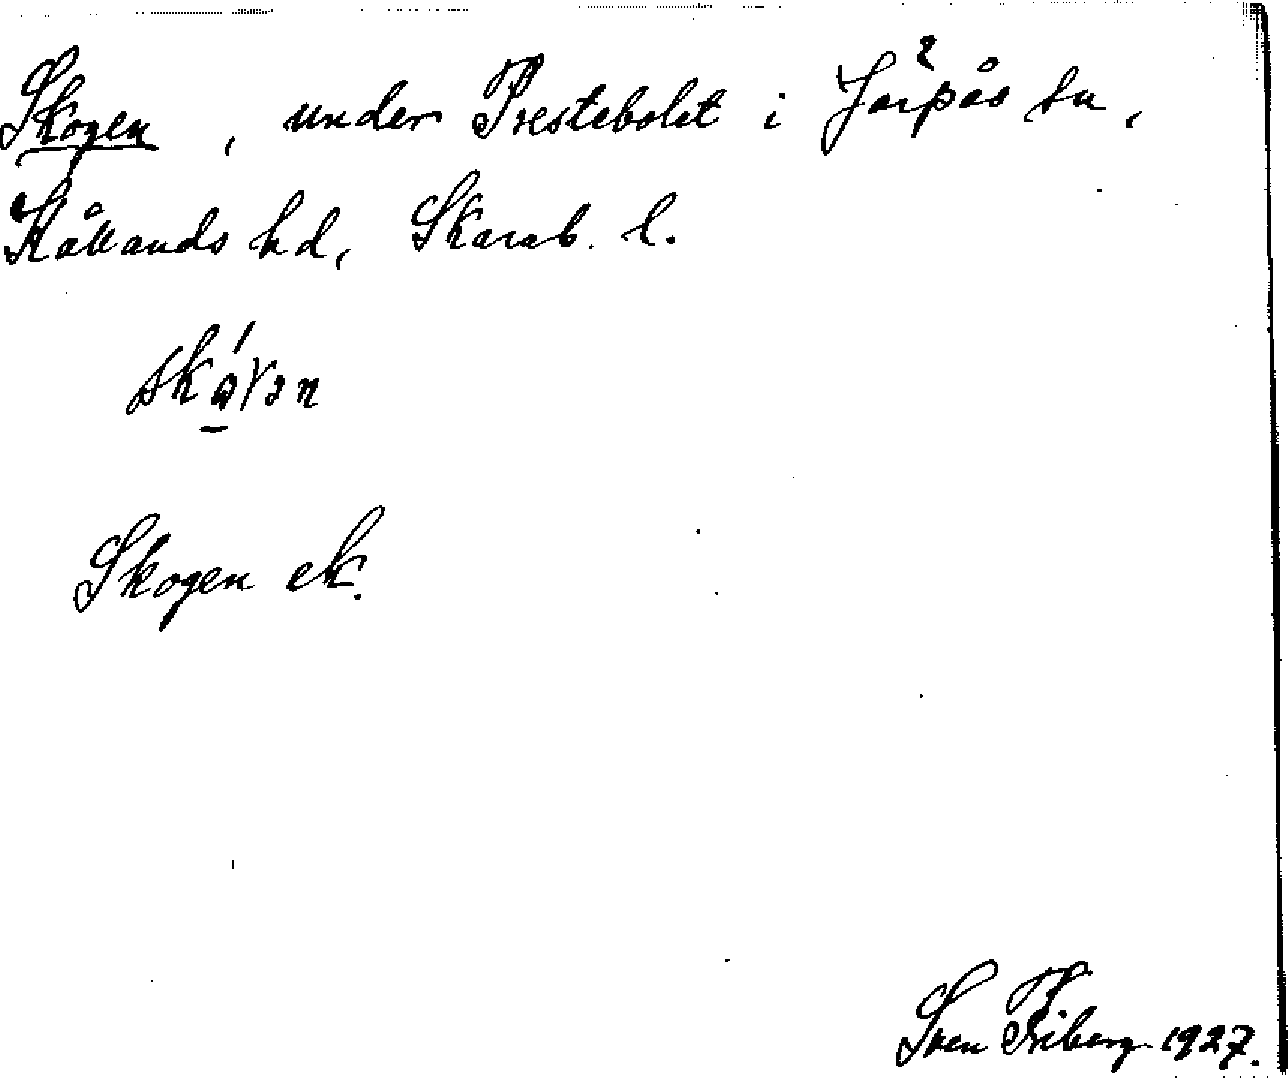 Skogen, under Prestebolet i Järpås sn,
Kållands hd, Skarab. l.
skó̱γən
Skogen ek.
Sven Friberg 1927.